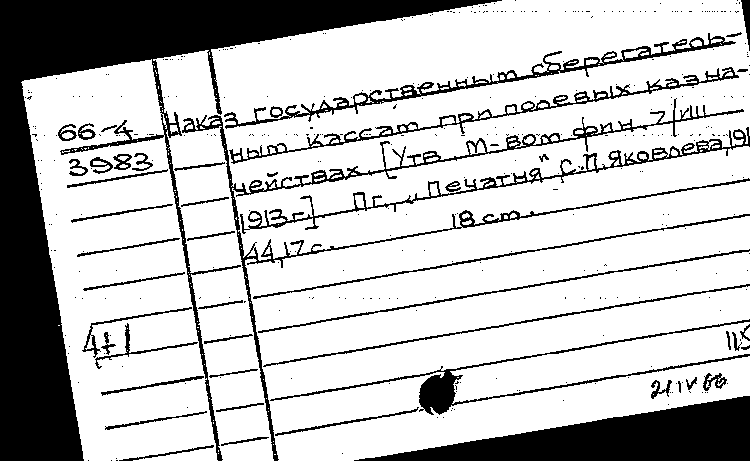 66-4 Наказ государственным сберегатель-
3983 ным кассам при полевых казна-
чействах. [Утв. М-вом фин. 7/III
1913 г.]. Пг., „Печатня" С.П. Яковлева, 191
44, 17 с. 18 см.
4+1
115
21 IV 66